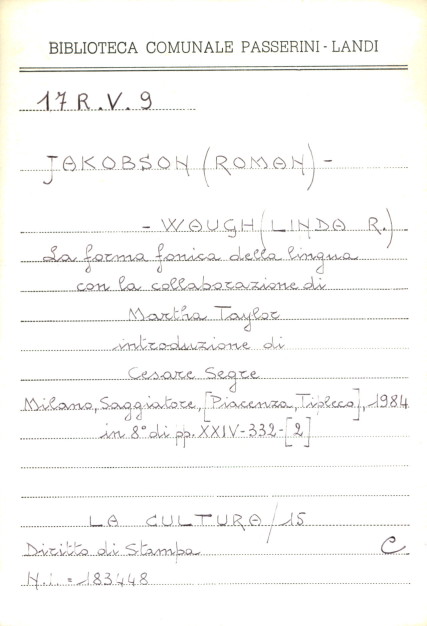 BIBLIOTECA COMUNALE PASSERINI - LANDI
17 R. V. 9
JAKOBSON (ROMAN) -
- WAUGH (LINDA R.)
La forma fonica della lingua
con la collaborazione di
Martha Taylor
introduzione di
Cesare Segre
Milano, Saggiatore, [Piacenza, Tipleco], 1984
in 8° di pp. XXIV-332-[2]
LA CULTURA / 15
Diritto di Stampa C
N.i. = 183448